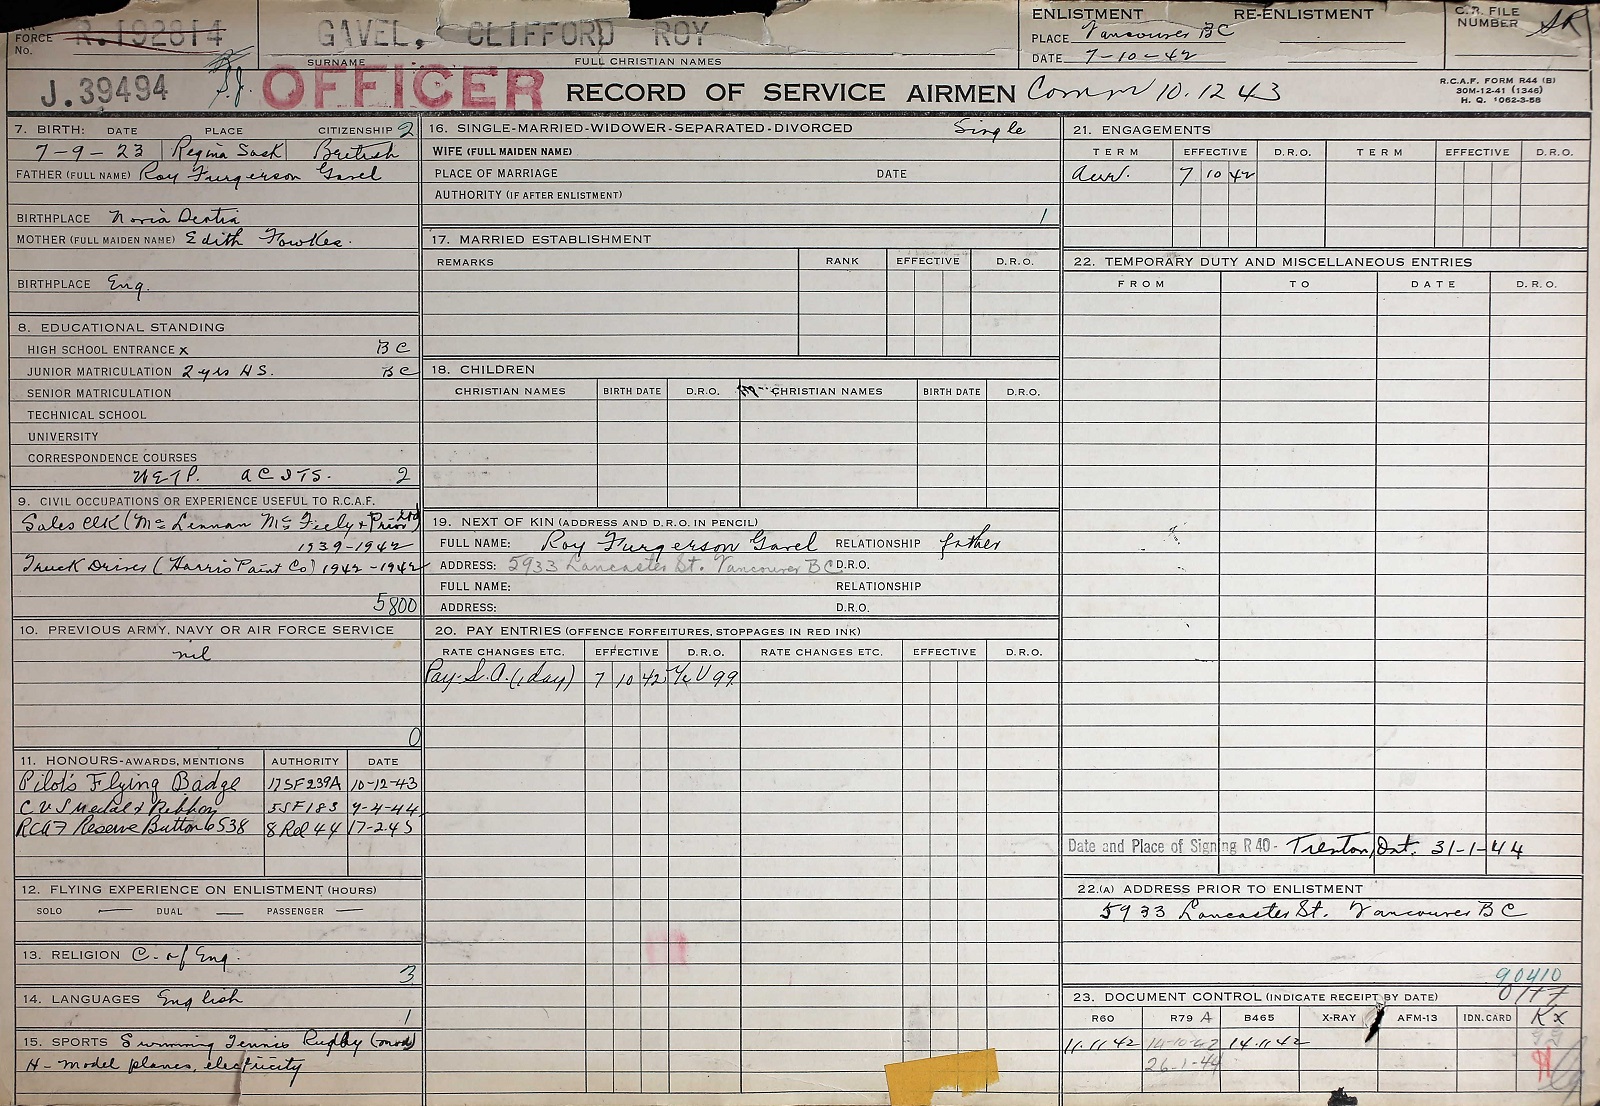 FORCE No. R.192814
GAVEL, CLIFFORD ROY
SURNAME FULL CHRISTIAN NAMES
ENLISTMENT RE-ENLISTMENT
PLACE Vancouver BC
DATE 7-10-42
C.R. FILE NUMBER
J.39494
OFFICER RECORD OF SERVICE AIRMEN Comm 10.12 43
R.C.A.F. FORM R44 (B)
30M-12-41 (1346)
H. Q. 1062-3-58
7. BIRTH: DATE PLACE CITIZENSHIP 2
7-9-23 Regina Sask British
FATHER (FULL NAME) Roy Furgerson Gavel
BIRTHPLACE Nova Scotia
MOTHER (FULL MAIDEN NAME) Edith Fowkes.
BIRTHPLACE Eng.
8. EDUCATIONAL STANDING
HIGH SCHOOL ENTRANCE x BC
JUNIOR MATRICULATION 2 yrs H.S. BC
SENIOR MATRICULATION
TECHNICAL SCHOOL
UNIVERSITY
CORRESPONDENCE COURSES
WETP. 2
9. CIVIL OCCUPATIONS OR EXPERIENCE USEFUL TO R.C.A.F.
Sales Clk (Mc Lennan Mc Feely & Prior Ltd)
1939-1942
Truck Driver (Harris Paint Co) 1942-1942
5800
10. PREVIOUS ARMY, NAVY OR AIR FORCE SERVICE
nil
0
11. HONOURS-AWARDS, MENTIONS AUTHORITY DATE
Pilot's Flying Badge 17SF239A 10-12-43
C V S Medal & Ribbon 5SF183 9-4-44
RCAF Reserve Button 6538 8 Rel 44 17-2-45
12. FLYING EXPERIENCE ON ENLISTMENT (HOURS)
SOLO — DUAL — PASSENGER —
13. RELIGION C. of Eng.
3
14. LANGUAGES English
1
15. SPORTS Swimming Tennis Rugby (mod)
H- model planes, electricity
16. SINGLE-MARRIED-WIDOWER-SEPARATED-DIVORCED Single
WIFE (FULL MAIDEN NAME)
PLACE OF MARRIAGE DATE
AUTHORITY (IF AFTER ENLISTMENT)
1
17. MARRIED ESTABLISHMENT
REMARKS RANK EFFECTIVE D.R.O.
18. CHILDREN
CHRISTIAN NAMES BIRTH DATE D.R.O. CHRISTIAN NAMES BIRTH DATE D.R.O.
19. NEXT OF KIN (ADDRESS AND D.R.O. IN PENCIL)
FULL NAME: Roy Furgerson Gavel RELATIONSHIP father
ADDRESS: 5933 Lancaster St. Vancouver BC D.R.O.
FULL NAME: RELATIONSHIP
ADDRESS: D.R.O.
20. PAY ENTRIES (OFFENCE FORFEITURES, STOPPAGES IN RED INK)
RATE CHANGES ETC. EFFECTIVE D.R.O. RATE CHANGES ETC. EFFECTIVE D.R.O.
Pay-S.A. (1 day) 7 10 42
21. ENGAGEMENTS
TERM EFFECTIVE D.R.O. TERM EFFECTIVE D.R.O.
7 10 42
22. TEMPORARY DUTY AND MISCELLANEOUS ENTRIES
FROM TO DATE D.R.O.
Date and Place of Signing R 40 - Trenton, Ont. 31-1-44
22.(A) ADDRESS PRIOR TO ENLISTMENT
5933 Lancaster St. Vancouver BC
90410
23. DOCUMENT CONTROL (INDICATE RECEIPT BY DATE)
R60 R79 A B465 X-RAY AFM-13 IDN. CARD
11.11 42 14-10-42 14.11 42
26-1-44